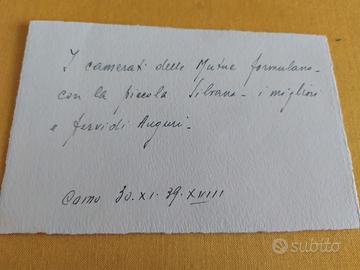 I camerati della Mutua formulano -
con la piccola Silvana - i migliori
e fervidi Auguri -
Como 30.XI.39.XVIII
subito